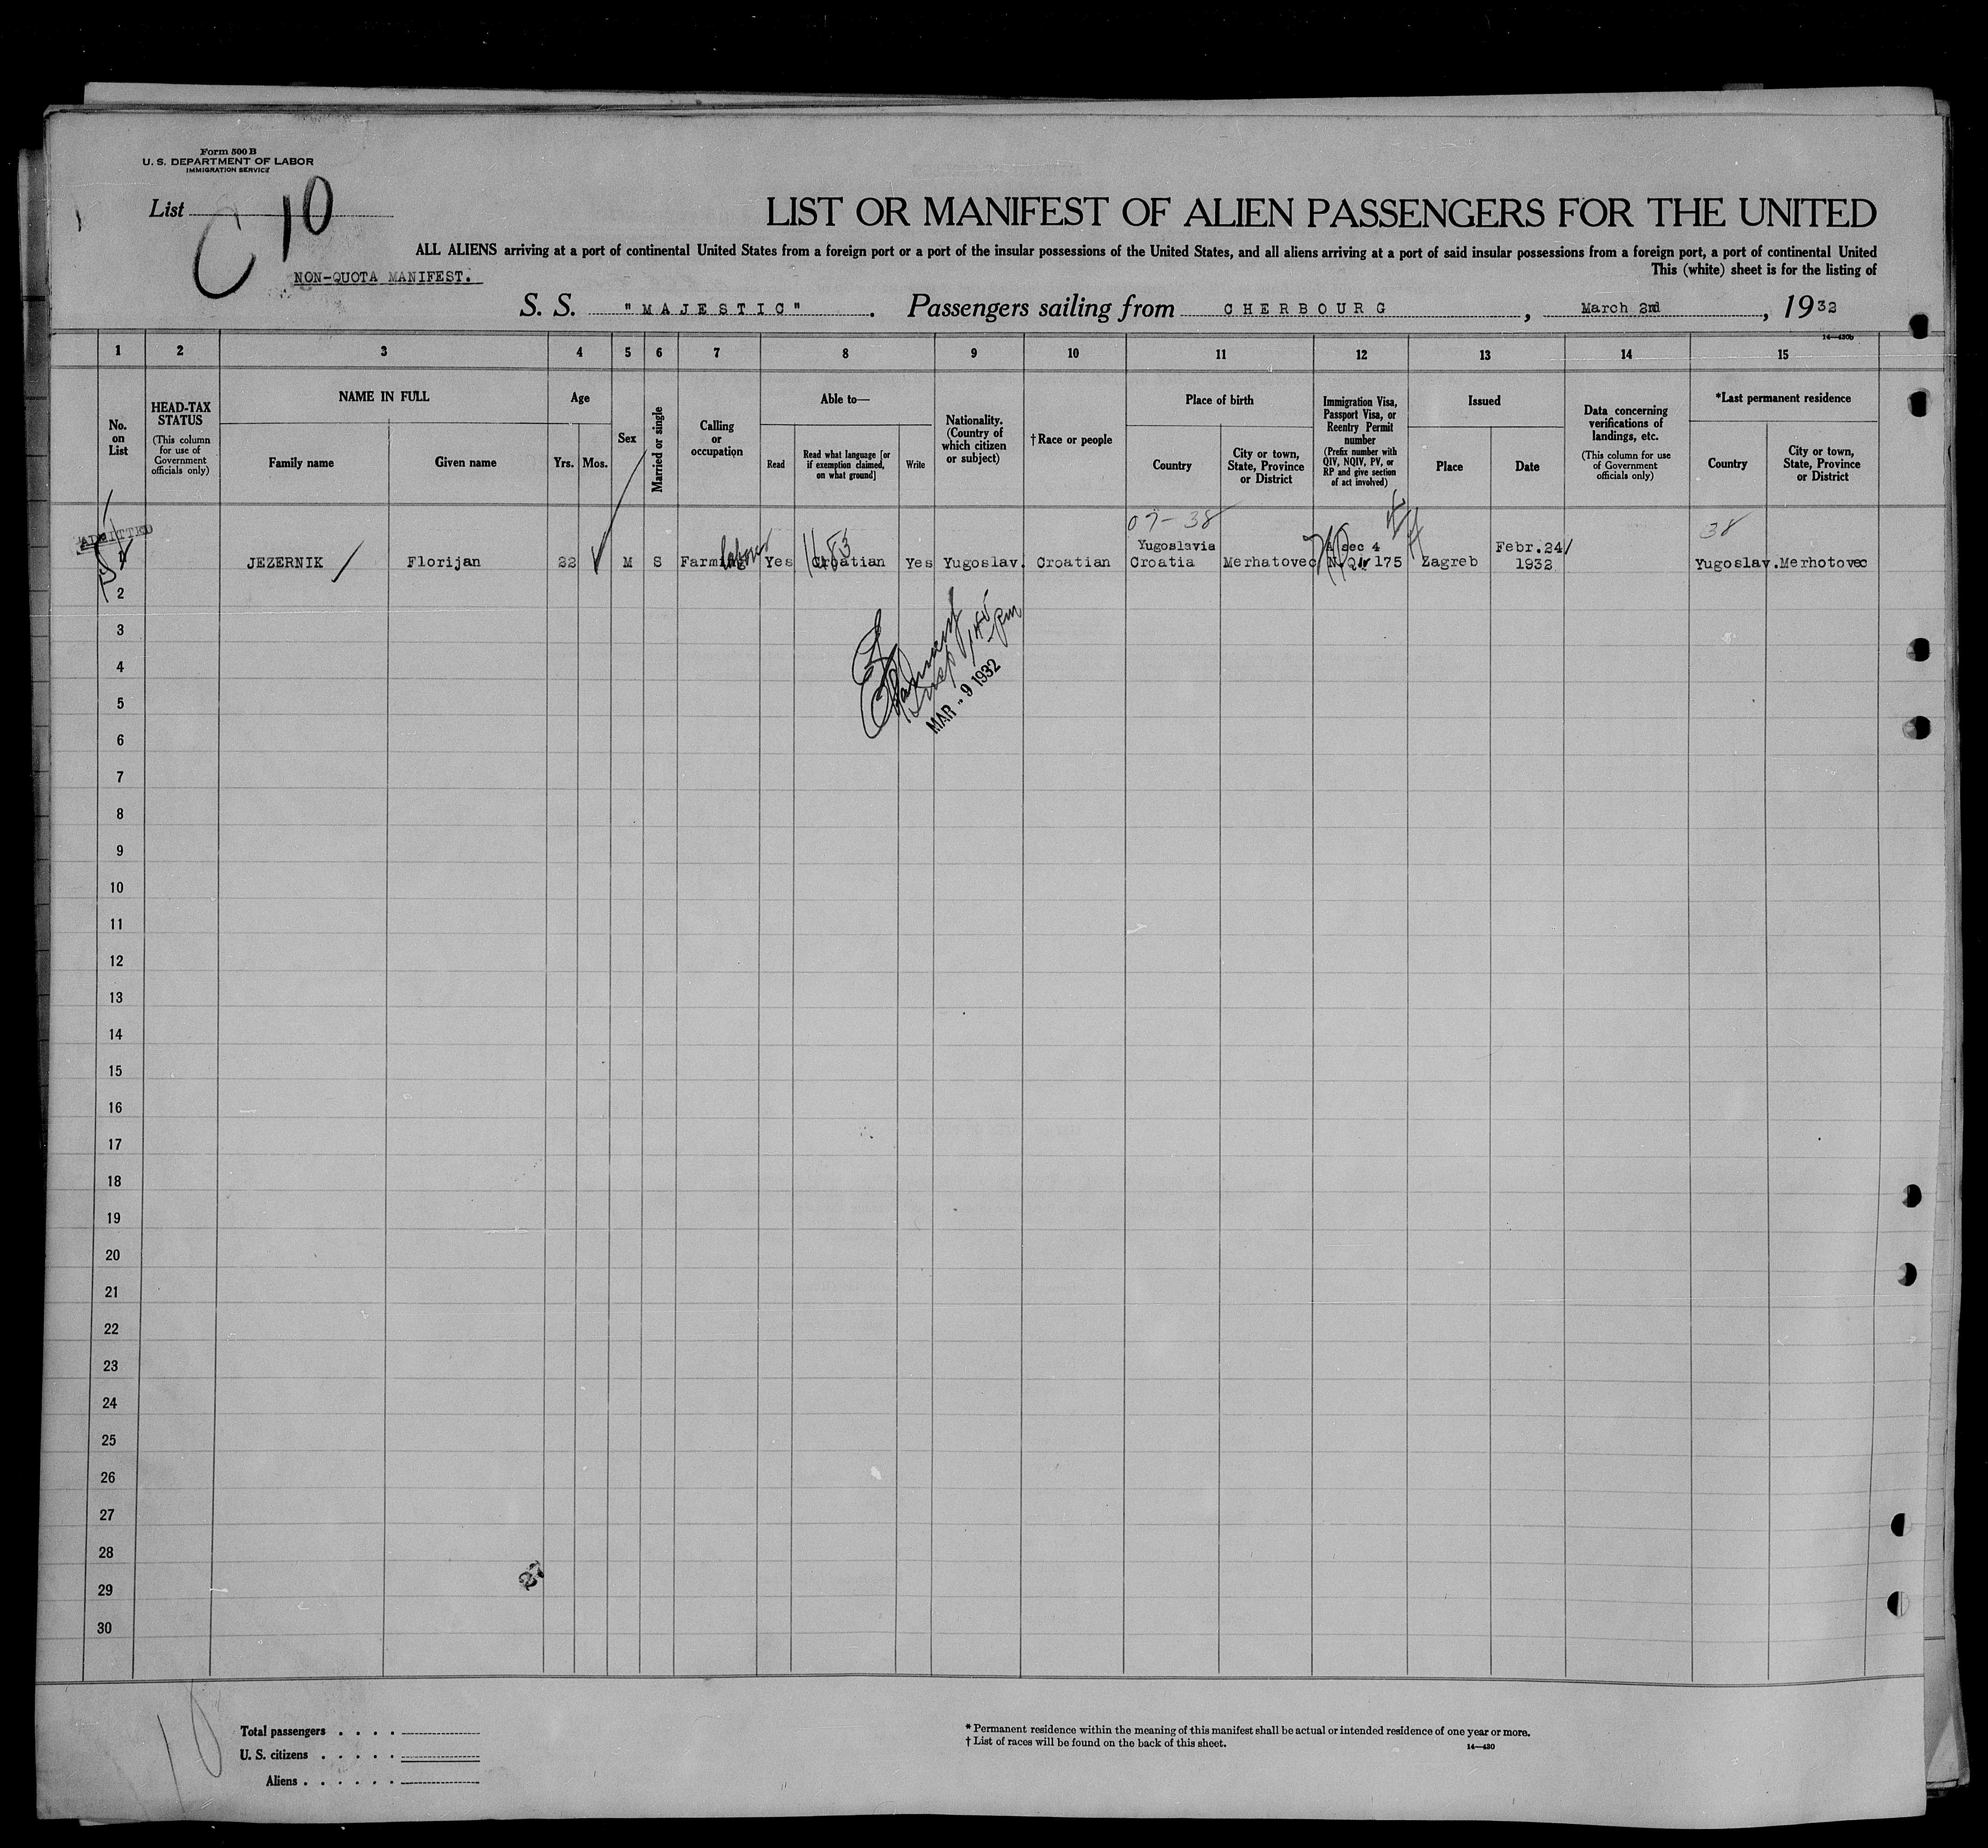 Form 500 B
U. S. DEPARTMENT OF LABOR
IMMIGRATION SERVICE
List C 10
LIST OR MANIFEST OF ALIEN PASSENGERS FOR THE UNITED
ALL ALIENS arriving at a port of continental United States from a foreign port or a port of the insular possessions of the United States, and all aliens arriving at a port of said insular possessions from a foreign port, a port of continental United
This (white) sheet is for the listing of
NON-QUOTA MANIFEST.
S. S. "MAJESTIC". Passengers sailing from CHERBOURG, March 2nd, 1932
14—430b
1 2 3 4 5 6 7 8 9 10 11 12 13 14 15
No. on List
HEAD-TAX STATUS
(This column for use of Government officials only)
NAME IN FULL
Family name
Given name
Age
Yrs. Mos.
Sex
Married or single
Calling or occupation
Able to—
Read
Read what language [or if exemption claimed, on what ground]
Write
Nationality. (Country of which citizen or subject)
† Race or people
Place of birth
Country
City or town, State, Province or District
Immigration Visa, Passport Visa, or Reentry Permit number
(Prefix number with QIV, NQIV, PV, or RP and give section of act involved)
Issued
Place
Date
Data concerning verifications of landings, etc.
(This column for use of Government officials only)
*Last permanent residence
Country
City or town, State, Province or District
ADMITTED
07-38
38
1 JEZERNIK Florijan 22 M S Farming labour Yes Croatian Yes Yugoslav. Croatian Yugoslavia Croatia Merhatovec sec 4 N.Q. 175 Zagreb Febr.24/ 1932 Yugoslav. Merhotovec
2
3
4
5
MAR - 9 1932
6
7
8
9
10
11
12
13
14
15
16
17
18
19
20
21
22
23
24
25
26
27
28
29
30
10
Total passengers . . . .
U. S. citizens . . . . .
Aliens . . . . . .
* Permanent residence within the meaning of this manifest shall be actual or intended residence of one year or more.
† List of races will be found on the back of this sheet.
14—430